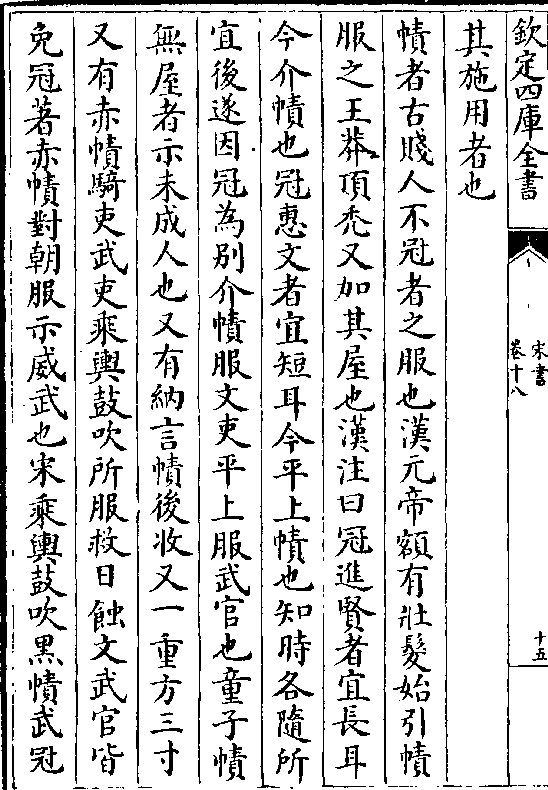 欽定四庫全書
宋書
卷十八
十五
其施用者也
幘者古賤人不冠者之服也漢元帝額有壯髮始引幘
服之王莽頂秃又加其屋也漢注曰冠進賢者宜長耳
今介幘也冠惠文者宜短耳今平上幘也知時各隨所
宜後遂因冠為別介幘服文吏平上服武官也童子幘
無屋者示未成人也又有納言幘後收又一重方三寸
又有赤幘騎吏武吏乘輿鼓吹所服救日蝕文武官皆
免冠著赤幘對朝服示威武也宋乘輿鼓吹黒幘武冠